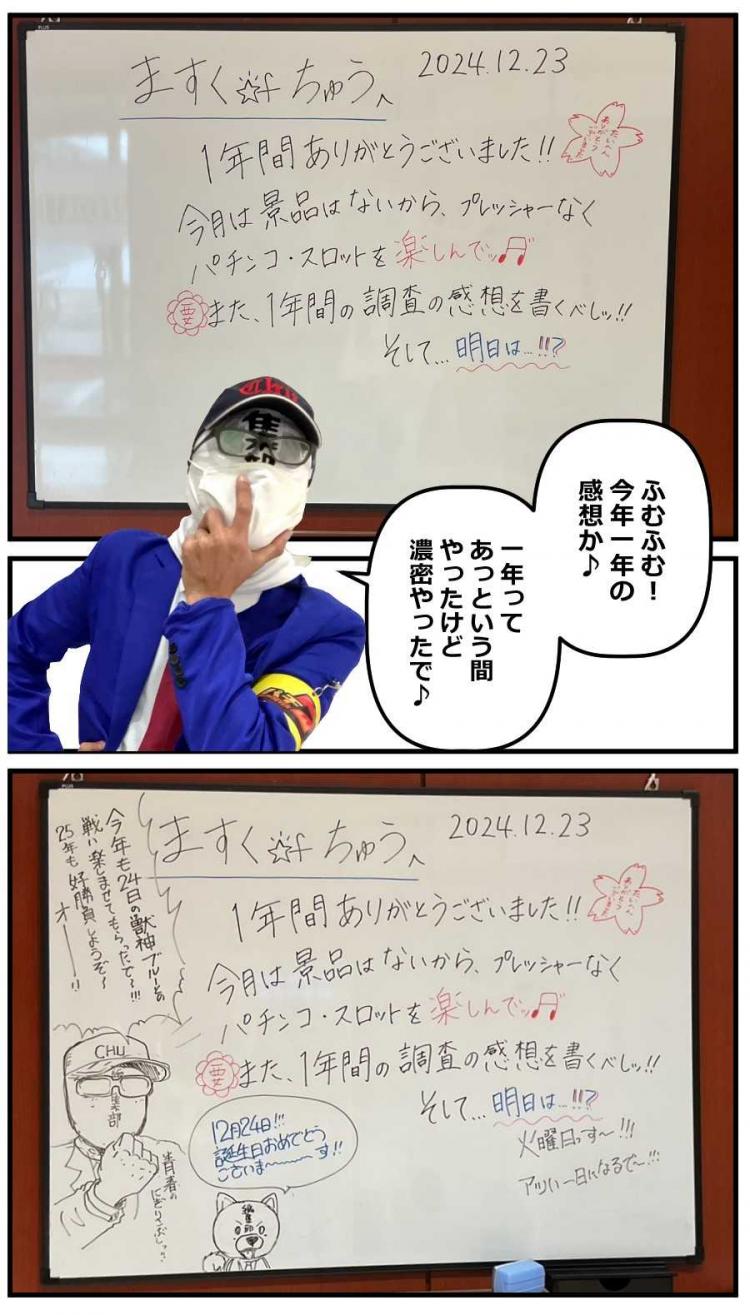 PLUS
ますく☆ofちゅうへ
2024.12.23
1年間ありがとうございました!!
たいへん
ありがとう
ございました
今月は景品はないから、プレッシャーなく
パチンコ・スロットを楽しんでッ♫
要また、1年間の調査の感想を書くべしッ!!
そして…明日は…!!?
ふむふむ!
今年一年の
感想か♪
一年って
あっという間
やったけど
濃密やったで♪
PLUS
ますく☆ofちゅうへ
2024.12.23
1年間ありがとうございました!!
たいへん
ありがとう
ございました
今月は景品はないから、プレッシャーなく
パチンコ・スロットを楽しんでッ♫
要また、1年間の調査の感想を書くべしッ!!
そして…明日は…!!?
火曜日っす〜!!!
アツい一日になるで〜!!!
今年も24日の獣神ブルーとの
戦い楽しませてもらったで〜!!!
25年も好勝負しようぞ〜
オーーー!!
CHU
編集部
青春の
にぎりこぶしっ!
12月24日!!!
誕生日おめでとう
ございま〜〜〜す!!
編集部